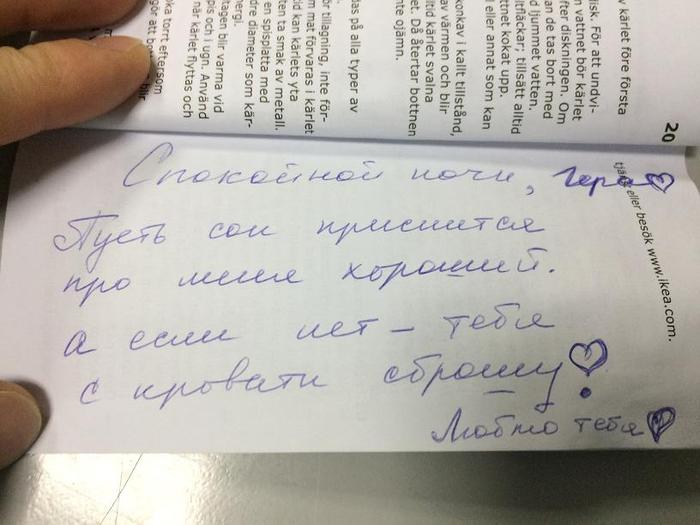 Спокойной ночи, Гера
Пусть сон приснится
про меня хороший.
а если нет – тебя
с кровати сброшу!
Люблю тебя
20
kärlet före första
disk. För att undvi-
vattnet bör kärlet
diskningen. Om
de tas bort med
ljummet vatten.
tillsätt alltid
kokat upp.
eller annat som kan
konkav i kallt tillstånd,
av värmen och blir
kärlet svalna
Då återtar bottnen
ojämn.
på alla typer av
tillagning, inte för-
mat förvaras i kärlet
kan kärlets yta
ta smak av metall.
en spisplatta med
diameter som kär-
blir varma vid
och ugn. Använd
när kärlet flyttas och
tort eftersom
att blir
eller besök www.ikea.com.